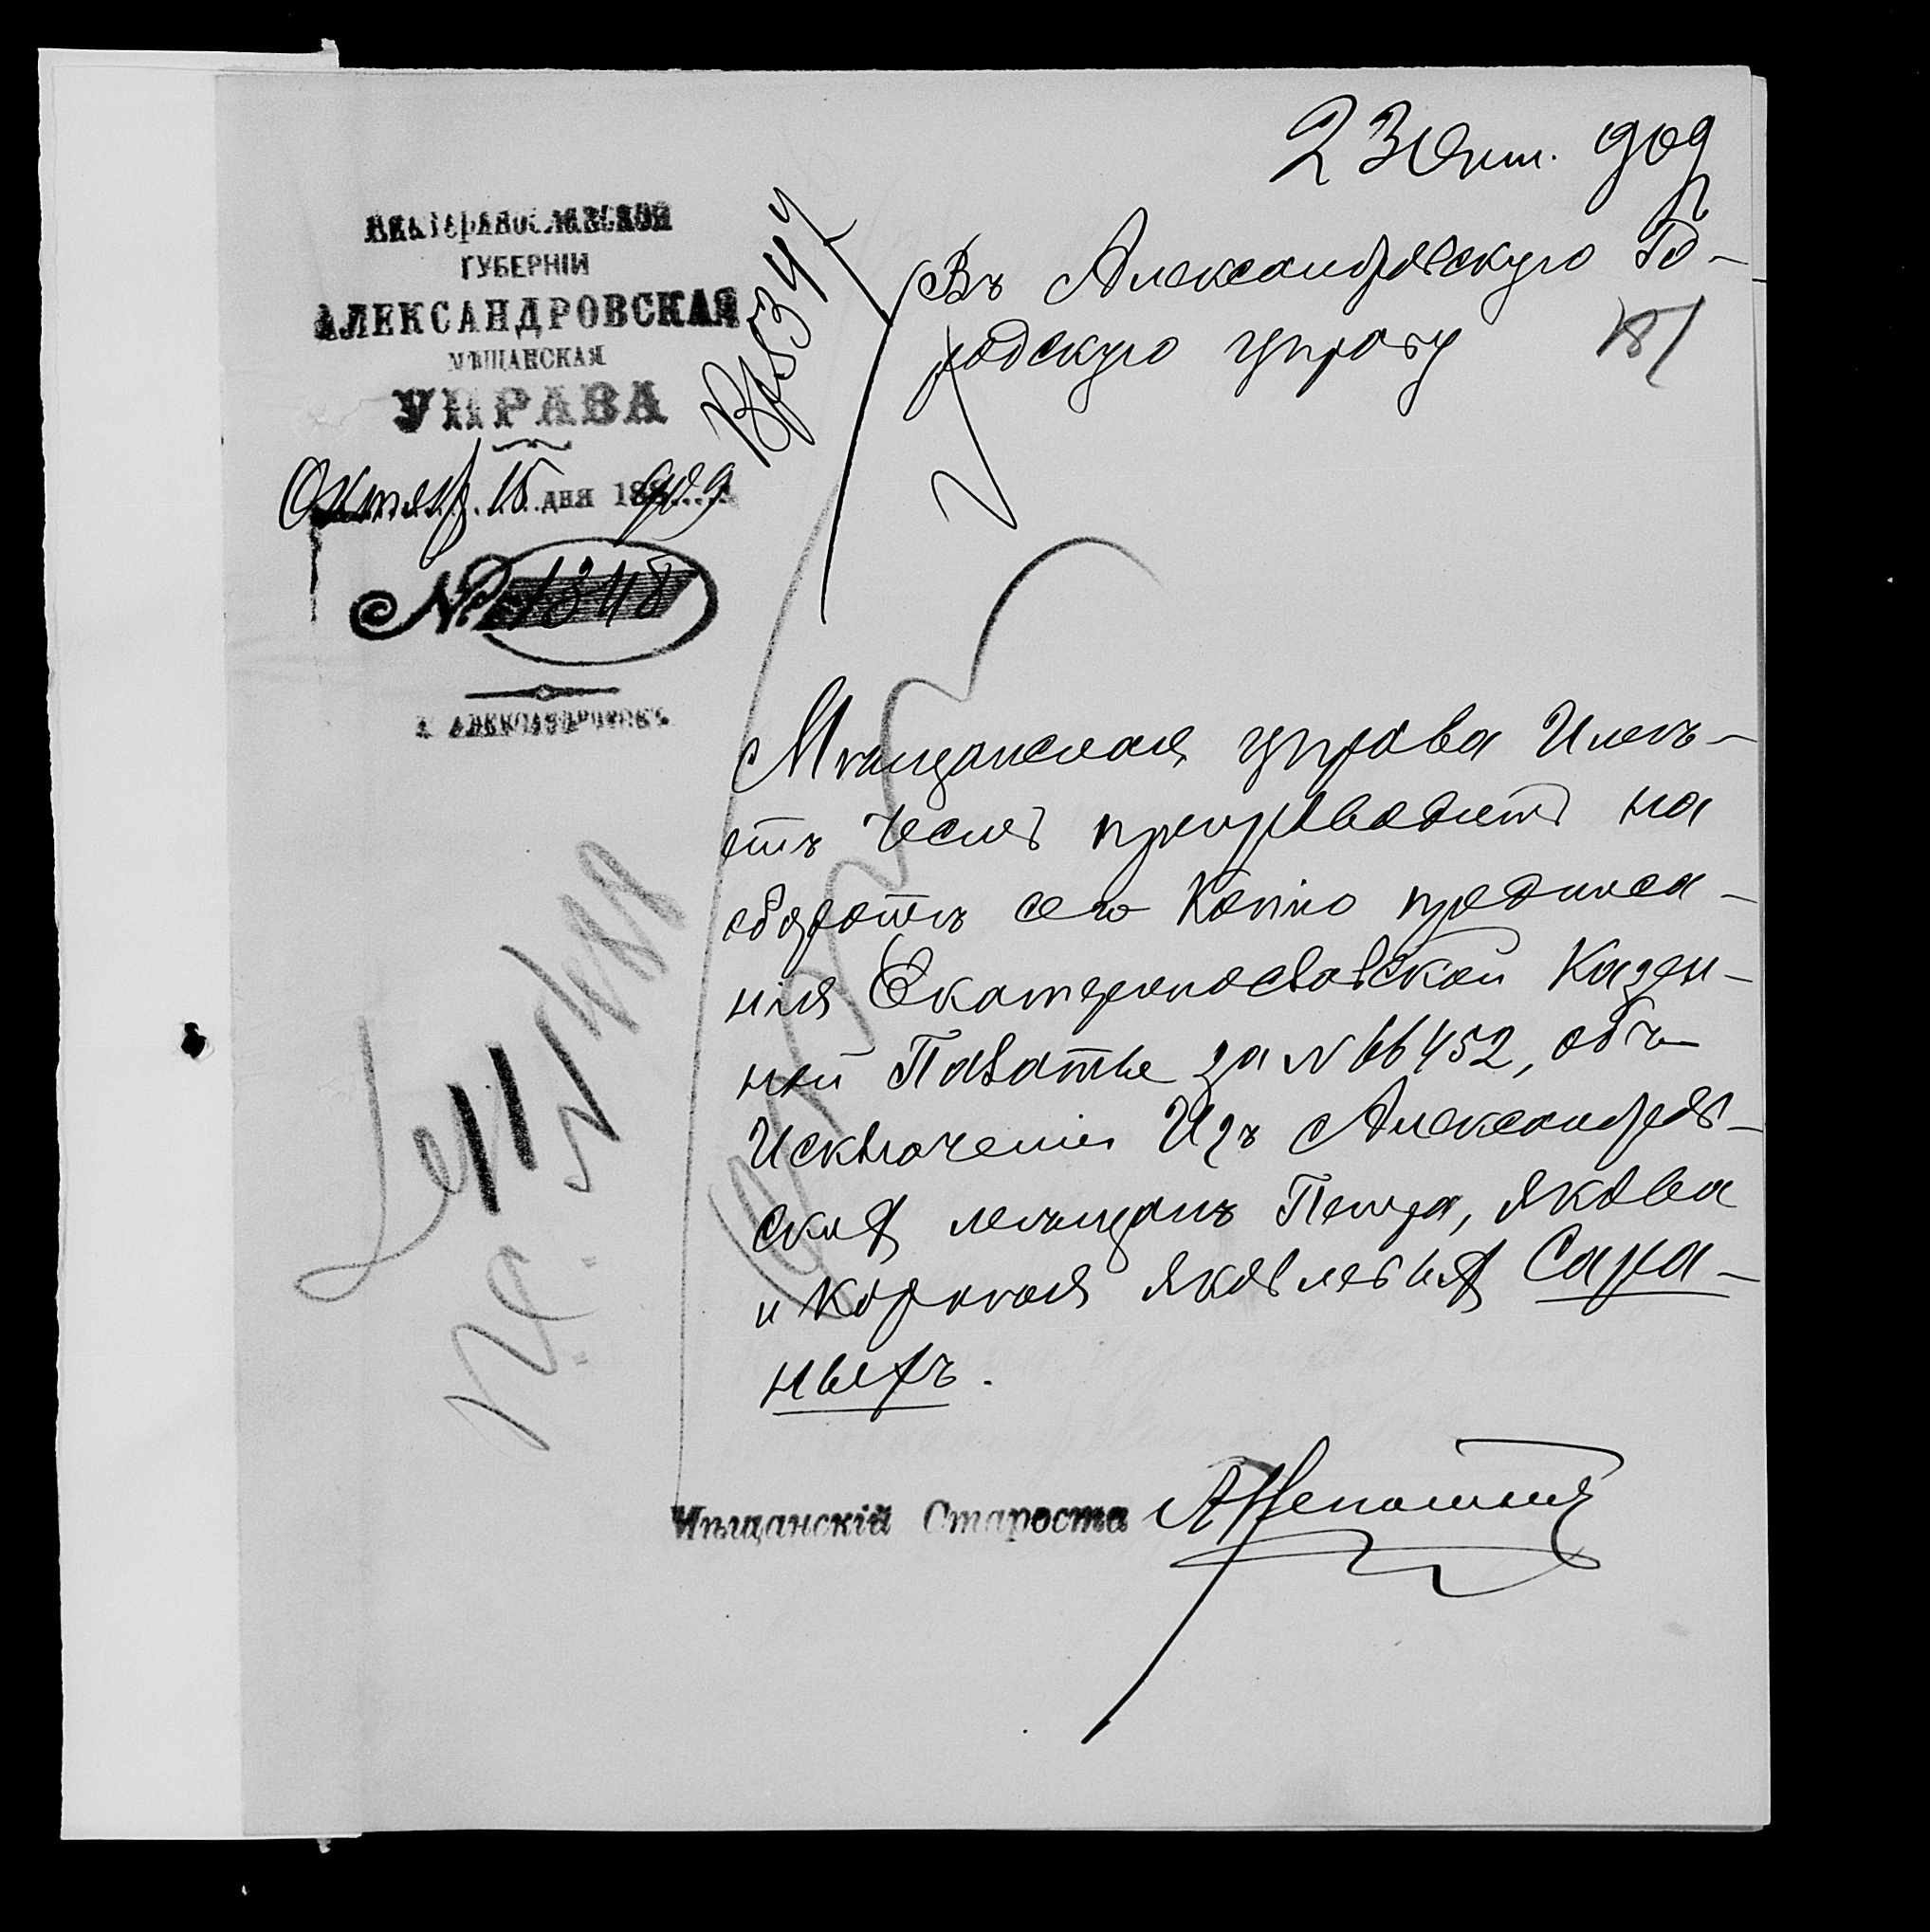 23 Окт. 909
ЕКАТЕРИНОСЛАВСКОЙ
ГУБЕРНІИ
АЛЕКСАНДРОВСКАЯ
МѢЩАНСКАЯ
УПРАВА
Октяб. 15 дня 1909
№ 1348
Г. АЛЕКСАНДРОВСКЪ
Вх 5344
Въ Александровскую Го-
родскую управу
181
Мѣщанская управа Имѣ-
етъ честь препроводить на
оборотѣ сего Копію предписа-
нія Екатеринославской Казен-
ной Палаты за № 66452, объ
Исключеніи Изъ Александров-
скихъ мѣщанъ Петра, Якова
и Корнѣя Яковлевыхъ Сара-
ныхъ.
Мѣщанскій Староста